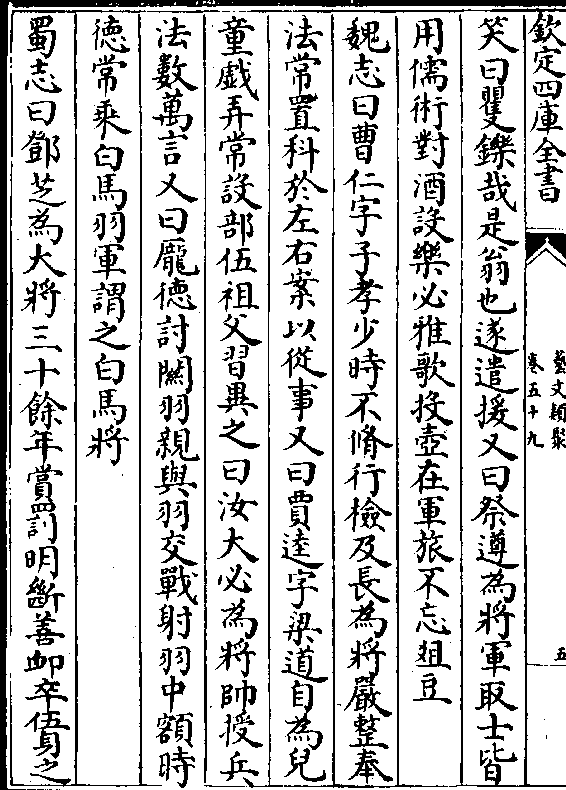 欽定四庫全書
藝文類聚
卷五十九
五
笑曰矍鑠哉是翁也遂遣援又曰祭遵為將軍取士皆
用儒術對酒設樂必雅歌投壺在軍旅不忘俎豆
魏志曰曹仁字子孝少時不脩行檢及長為將嚴整奉
法常置科於左右案以從事又曰賈逵字梁道自為兒
童戲弄常設部伍祖父習異之曰汝大必為將帥授兵
法數萬言又曰龐徳討關羽親與羽交戰射羽中額時
徳常乘白馬羽軍謂之白馬將
蜀志曰鄧芝為大將三十餘年賞罰明斷善卹卒伍身之